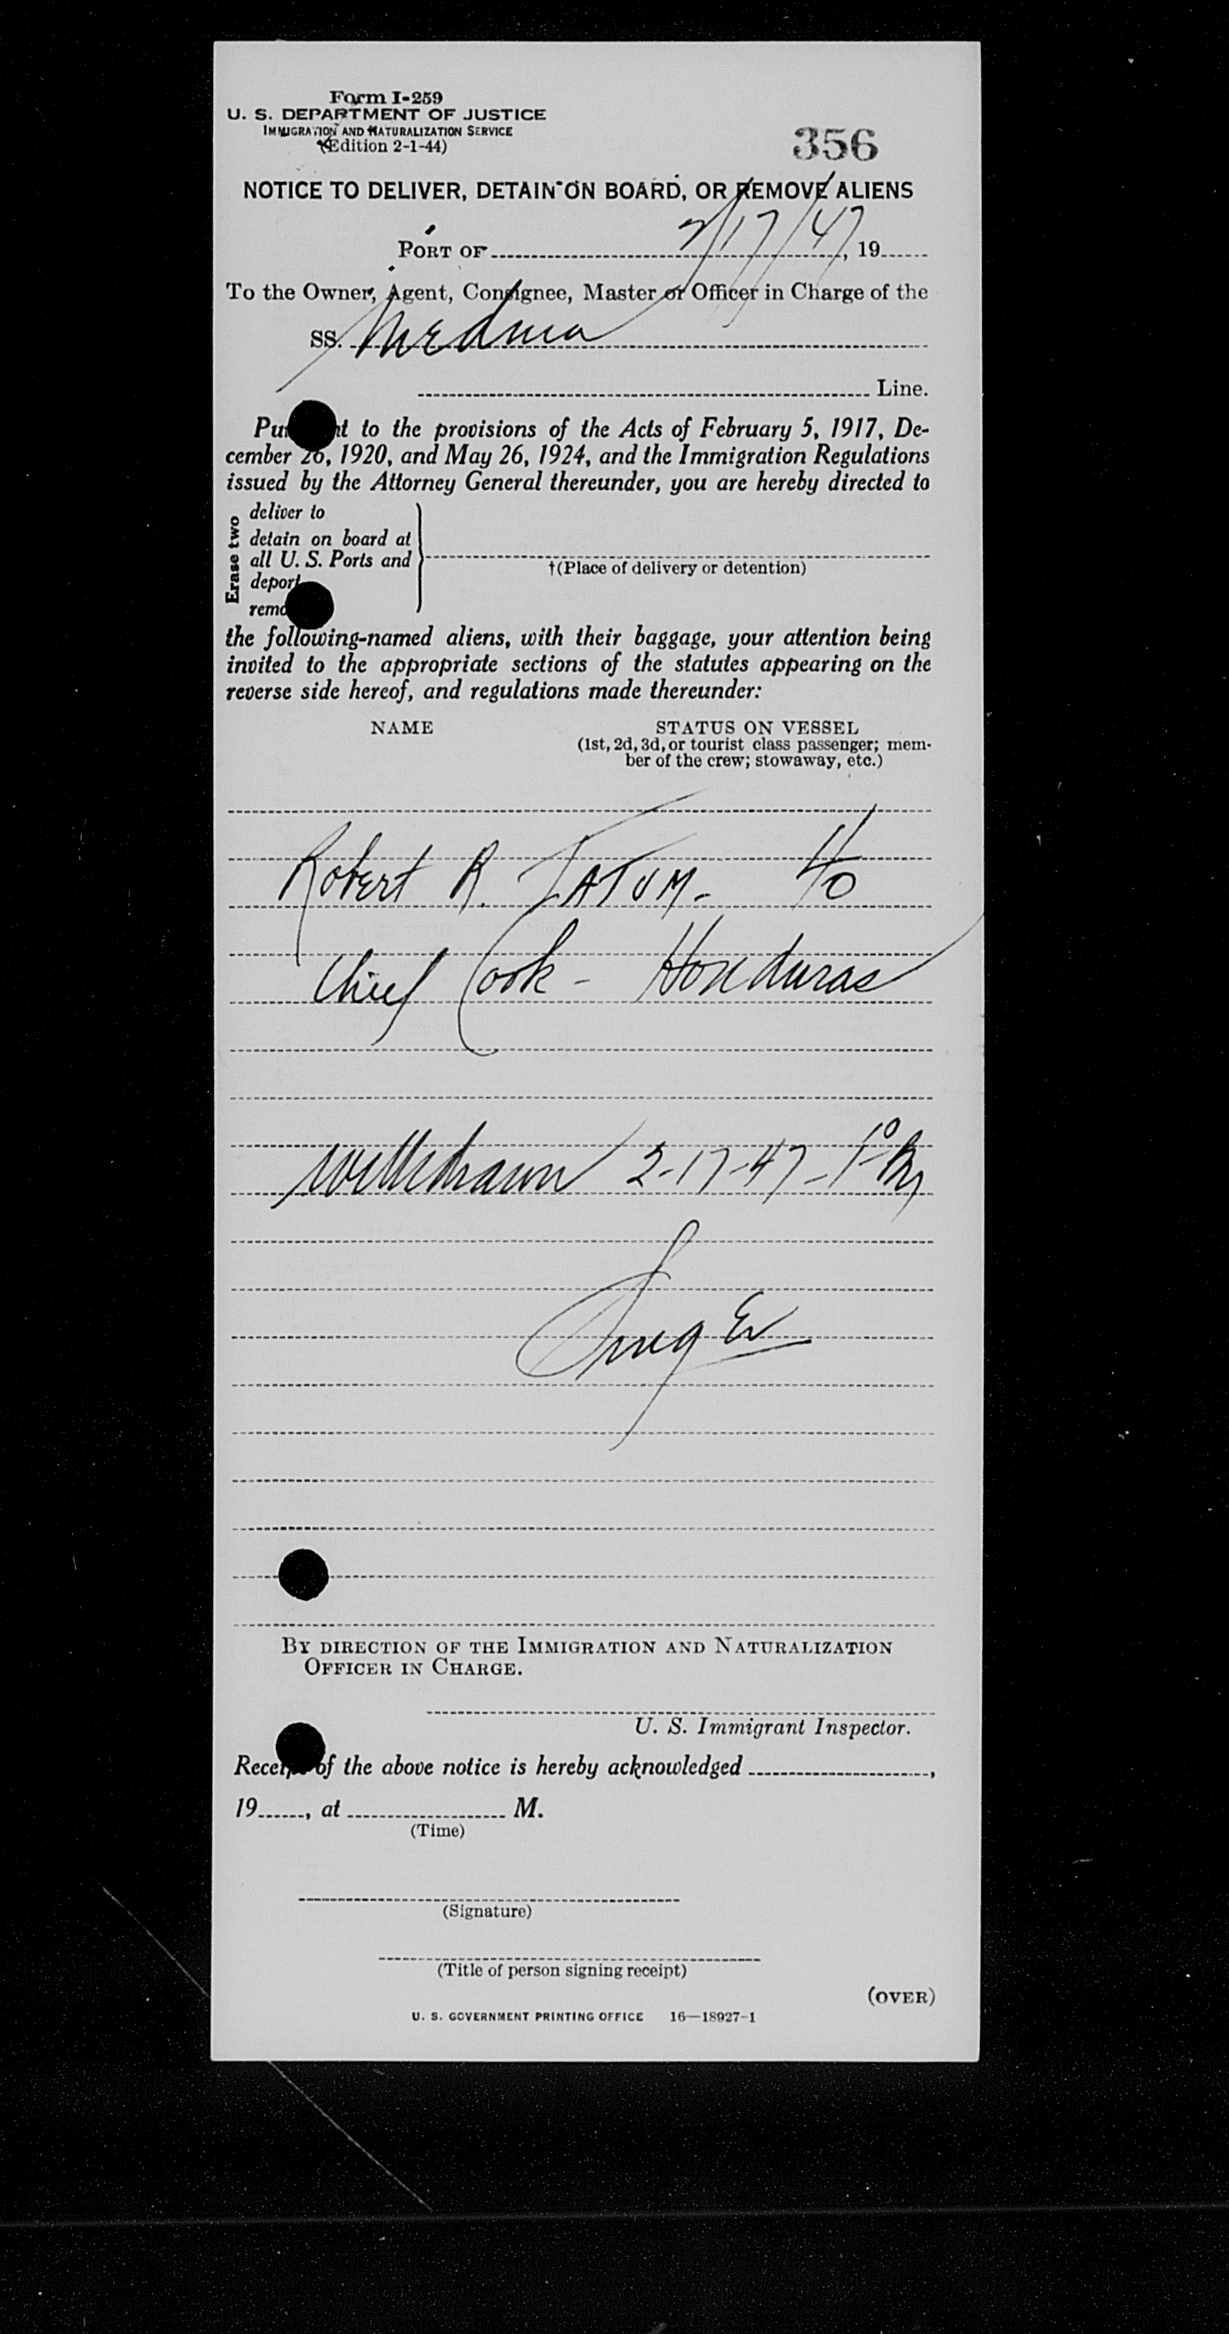 Form I-259
U. S. DEPARTMENT OF JUSTICE
IMMIGRATION AND NATURALIZATION SERVICE
(Edition 2-1-44)
356
NOTICE TO DELIVER, DETAIN ON BOARD, OR REMOVE ALIENS
PORT OF 2/17/47, 19
To the Owner, Agent, Consignee, Master or Officer in Charge of the
SS.
Line.
t to the provisions of the Acts of February 5, 1917, De-
cember 26, 1920, and May 26, 1924, and the Immigration Regulations
issued by the Attorney General thereunder, you are hereby directed to
Erase two
deliver to
detain on board at
all U. S. Ports and
deport
remo
†(Place of delivery or detention)
the following-named aliens, with their baggage, your attention being
invited to the appropriate sections of the statutes appearing on the
reverse side hereof, and regulations made thereunder:
NAME STATUS ON VESSEL
(1st, 2d, 3d, or tourist class passenger; mem-
ber of the crew; stowaway, etc.)
Robert R. TATUM - 40
Chief Cook - Honduras
Withdrawn 2-17-47 -
BY DIRECTION OF THE IMMIGRATION AND NATURALIZATION
OFFICER IN CHARGE.
U. S. Immigrant Inspector.
Receipt of the above notice is hereby acknowledged ,
19 , at M.
(Time)
(Signature)
(Title of person signing receipt)
(OVER)
U. S. GOVERNMENT PRINTING OFFICE 16—18927-1